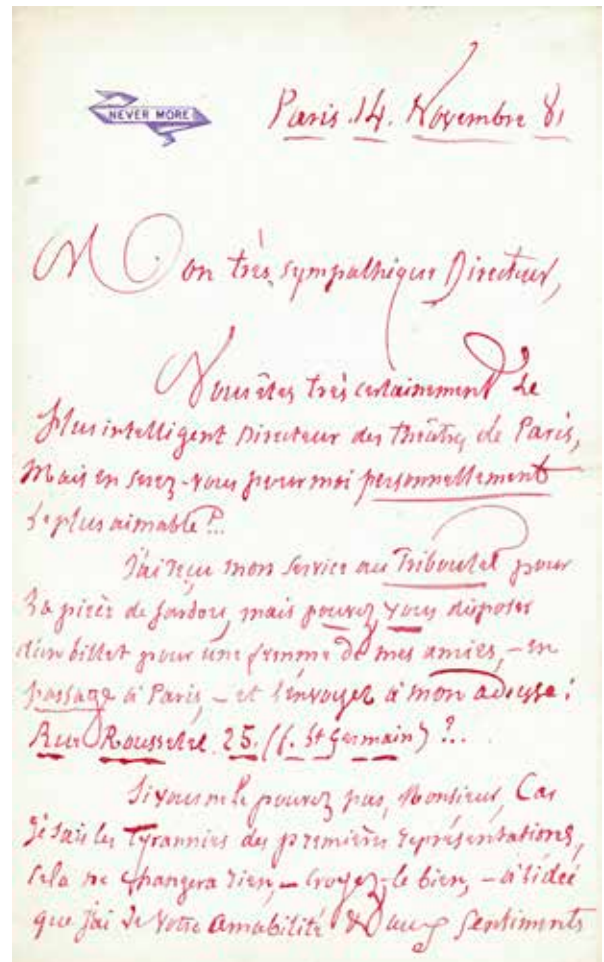 NEVER MORE
Paris. 14. Novembre 81
Mon très sympathique Directeur,
Vous êtes très certainement le
plus intelligent Directeur des Théâtres de Paris,
Mais en serez-vous pour moi personnellement
le plus aimable ?..
J'ai reçu mon service au Triboulet pour
la pièce de Sardou, mais pouvez vous disposer
d'un billet pour une femme de mes amies, – en
passage à Paris, – et l'envoyer à mon adresse :
Rue Rousselet. 25. (f. St Germain) ?..
Si vous ne le pouvez pas, Monsieur, Car
je sais les Tyrannies des premières représentations,
cela ne changera rien, – croyez-le bien, – à l'idée
que j'ai de Votre Amabilité & aux Sentiments